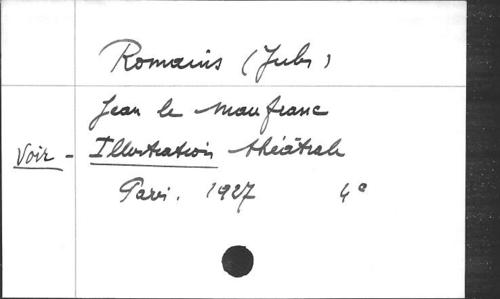 Romains (Jules)
Jean le Maufranc
Voir - Illustration théâtrale
Paris. 1927 4°